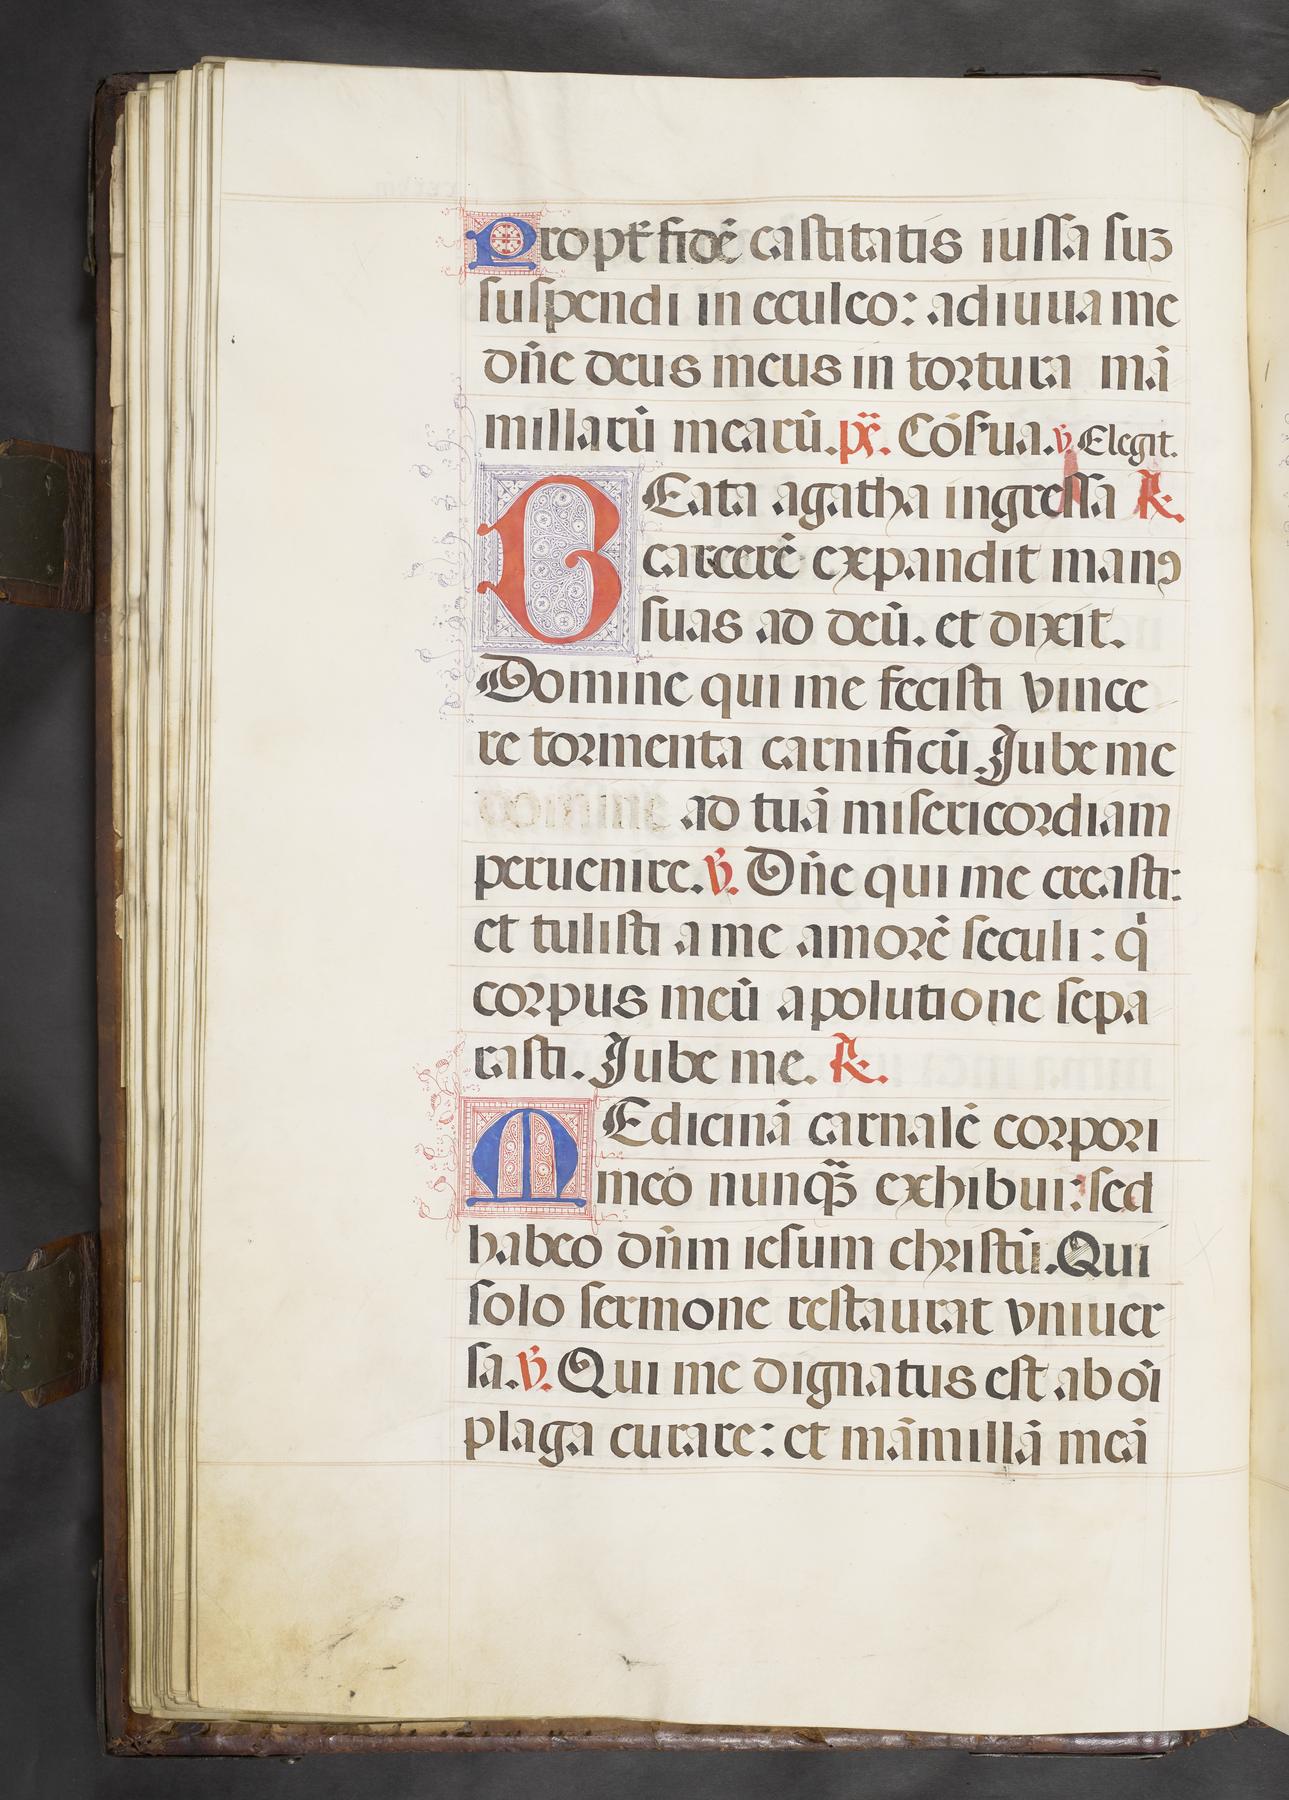 Propt̄ fidē castitatis iussa suꝫ
suspendi in eculeo: adiuua me
dn̄e deus meus in tortura mā
millarū mearū. p̄x. Cōserua. v̄. Elegit.
BEata agatha ingressa ℟.
carcerē expandit manꝯ
suas ad deū. et dixit.
Domine qui me fecisti vince
re tormenta carnificū. Jube me
ad tuā misericordiam
peruenire. ℣. Dn̄e qui me creasti:
et tulisti a me amorē seculi: q̇
corpus meū a polutione sepa
rasti. Jube me. ℟.
MEdicinā carnalē corpori
meo nunq̄ꝫ exhibui: sed
habeo dn̄m iesum christū. Qui
solo sermone restaurat vniuer
sa. ℣. Qui me dignatus est ab oī
plaga curare: et māmillā meā